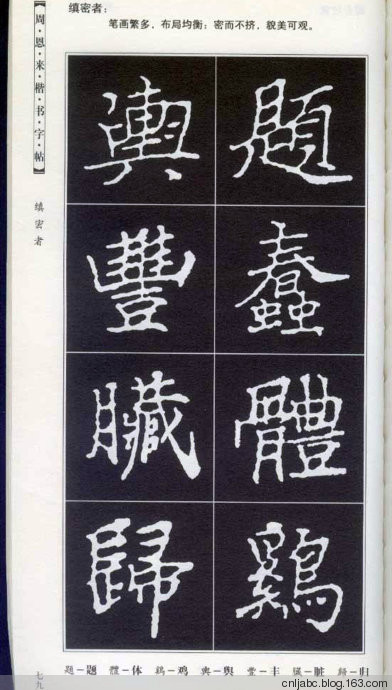 缜密者：
笔画繁多，布局均衡；密而不挤，貌美可观。
【周·恩·来·楷·书·字·帖】
缜密者
題
蠢
體
鷄
輿
豐
臟
歸
題—题 體—体 鷄—鸡 輿—舆 豐—丰 臟—脏 歸—归
七九
cnljabc.blog.163.com